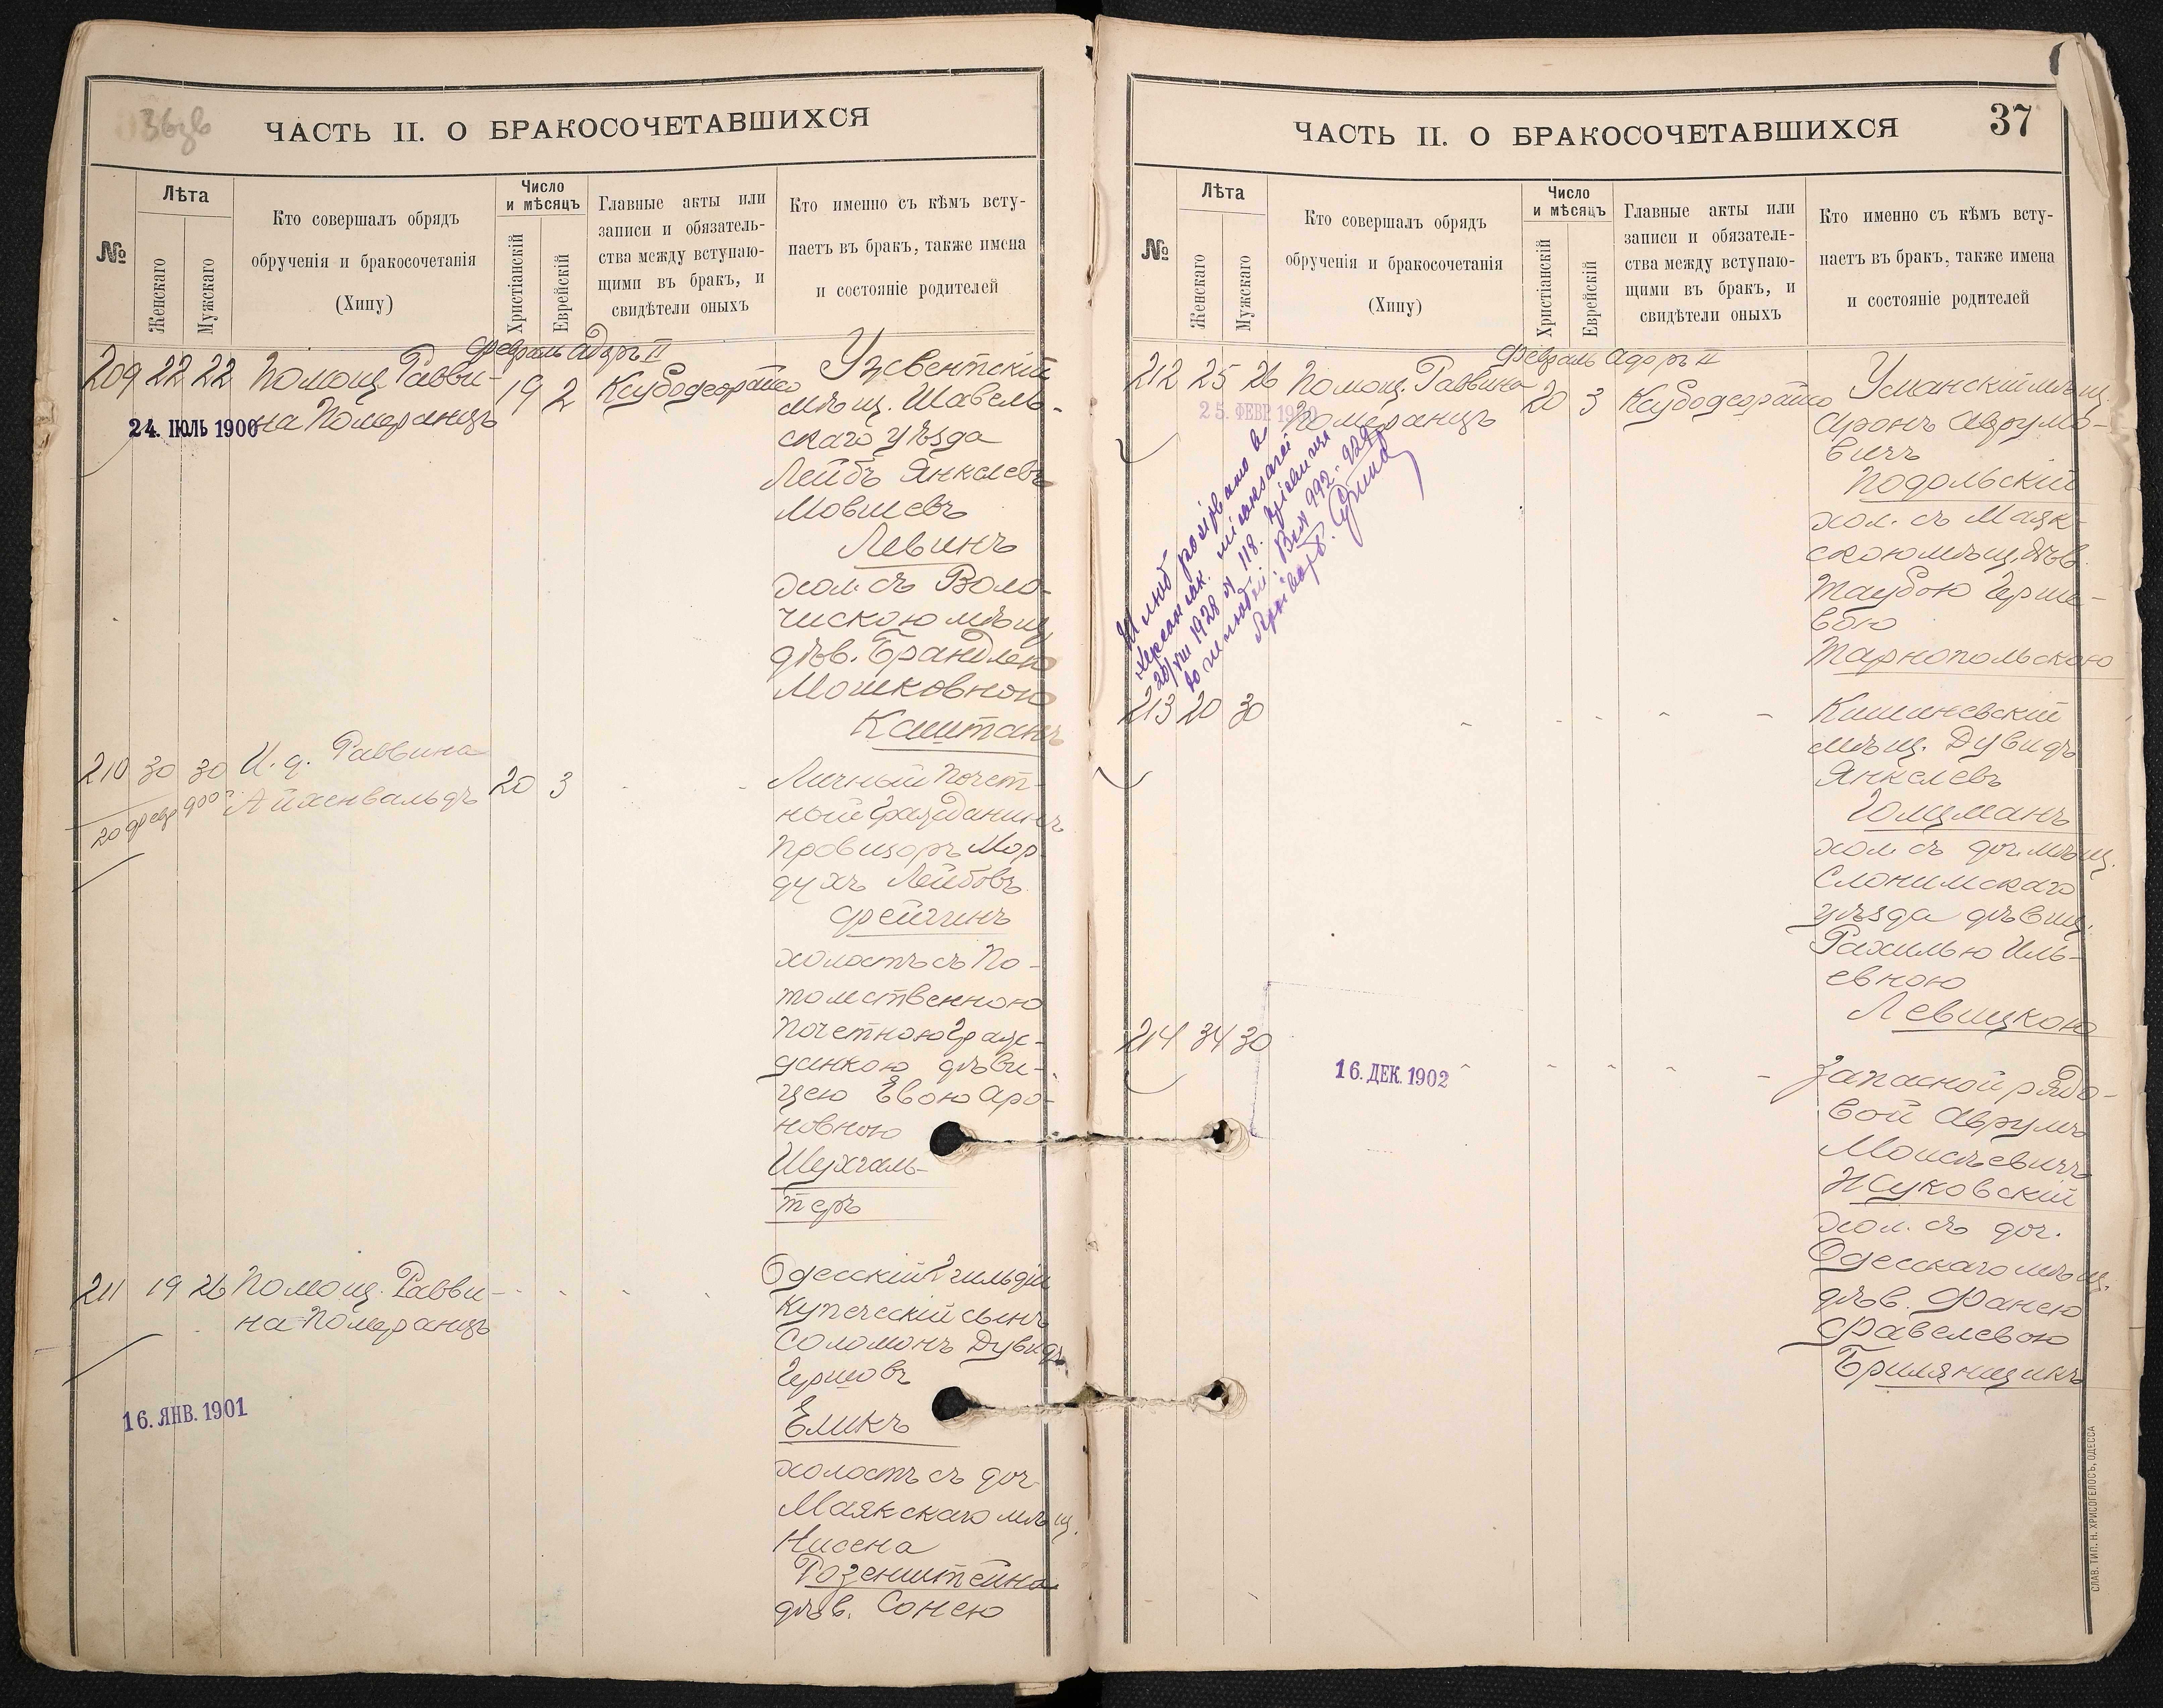 ЧАСТЬ II. О БРАКОСОЧЕТАВШИХСЯ
№
Лѣта
Женскаго
Мужскаго
Кто совершалъ обрядъ
обрученія и бракосочетанія
(Хипу)
Число
и мѣсяцъ
Христіанскій
Еврейскій
Главные акты или
записи и обязатель-
ства между вступаю-
щими въ бракъ, и
свидѣтели оныхъ
Кто именно съ кѣмъ всту-
паетъ въ бракъ, также имена
и состояніе родителей
Февраль Адаръ II
209 22 22 Помощ. Равви-
на Померанцъ
19 2
24. IЮЛЬ 1900
Узвентскій
мѣщ. Шавель-
скаго уѣзда
Лейбъ Янкелевъ
Мовшевъ
Левинъ
хол. съ Воло-
чискою мѣщ.
дѣв. Брандлею
Мошковною
Каштанъ
210 30 30 И. д. Раввина
Айхенвальдъ
20 3
20 февр 900 г.
Личный Почет-
ный Гражданинъ
Провизоръ Мор-
духъ Лейбовъ
Фейгинъ
холостъ съ По-
томственною
Почетною Граж-
данкою дѣви-
цею Евою Аро-
новною
Шухгаль-
теръ
211 19 26 Помощ. Равви-
на Померанцъ
16. ЯНВ. 1901
Одесскій 2 гильдіи
Купеческій сынъ
Соломонъ Дувидъ
Гершовъ
Еликъ
холостъ съ доч.
Маякскаго мѣщ.
Нисена
Розенштейна
дѣв. Сонею
ЧАСТЬ II. О БРАКОСОЧЕТАВШИХСЯ
37
№
Лѣта
Женскаго
Мужскаго
Кто совершалъ обрядъ
обрученія и бракосочетанія
(Хипу)
Число
и мѣсяцъ
Христіанскій
Еврейскій
Главные акты или
записи и обязатель-
ства между вступаю-
щими въ бракъ, и
свидѣтели оныхъ
Кто именно съ кѣмъ всту-
паетъ въ бракъ, также имена
и состояніе родителей
Февраль Адаръ II
212 25 26 Помощ. Раввина
Померанцъ
20 3
25. ФЕВР.
Уманскій мѣщ.
Аронъ Аврумо-
вичъ
Подольскій
хол. съ Маяк-
скою мѣщ. дѣв.
Таубою Герше-
вою
Тарнопольскою
213 20 30
Кишиневскій
мѣщ. Дувидъ
Янкелевъ
Голцманъ
хол. съ доч. мѣщ.
Слонимскаго
уѣзда дѣвиц.
Рахилью Иль-
евною
Левицкою
214 34 30
16. ДЕК. 1902
Запасной рядо-
вой Аврумъ
Моисѣевичъ
Жуковскій
хол. съ доч.
Одесскаго мѣщ.
дѣв. Фанею
Файвелевою
Брилянщикъ
СЛАВ. ТИП. Н. ХРИСОГЕЛОСЪ, ОДЕССА